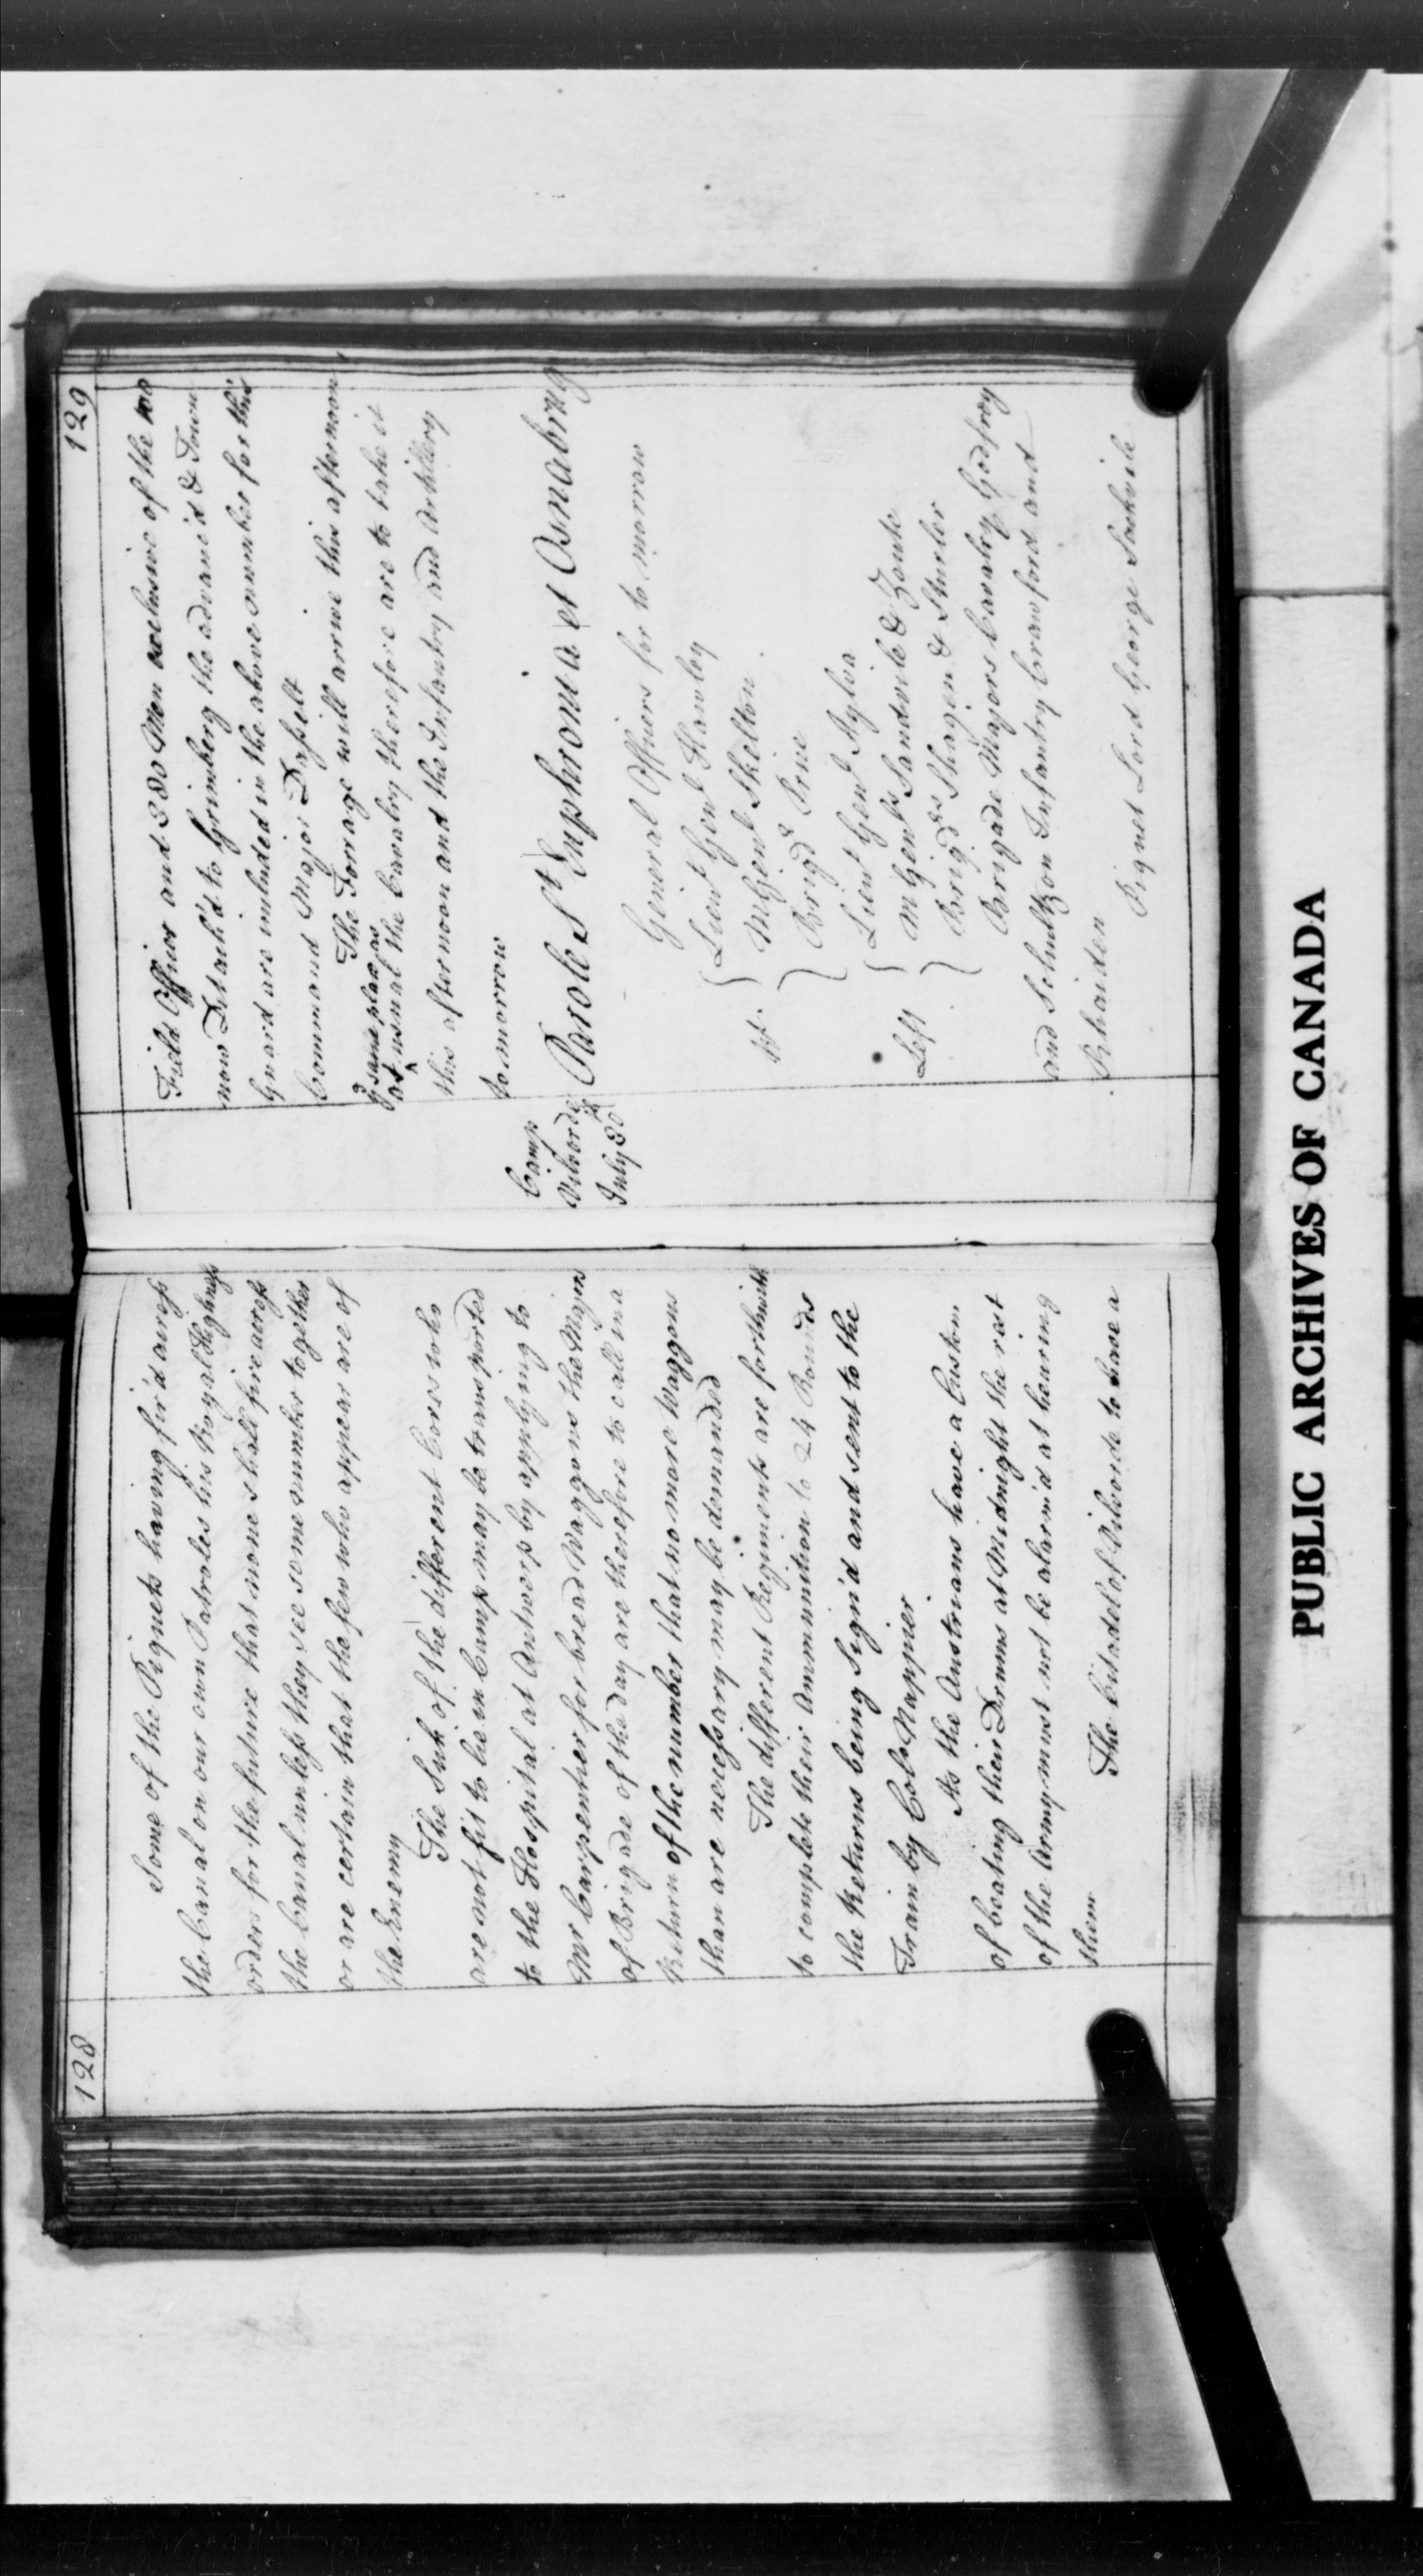 128
Some of the Piquets having fir'd across
the Canal on our own Patroles his Royal Highness
orders for the future that none shall fire across
the Canal unless they see some number together
or are certain that the few who appear are of
the Enemy
The Sick of the different Cores who
are not fit to lie in Camp may be transported
to the Hospital at Antwerp by applying to
Mr Carpentier for bread Waggons the Majors
of Brigade of the day are therefore to call in a
Return of the number that no more Waggons
than are necessary may be demanded
The different Regiments are forthwith
to complete their Ammunition to 24 Rounds
the Returns being Sign'd and sent to the
Train by Colo Nappier
As the Austrians have a Custom
of beating their Drums at Midnight the rest
of the Army must not be alarm'd at hearing
them
The Citadel of Vilvorde to have a
129
Field Officer and 380 Men exclusive of the 100
now Detach'd to Grimberg the advanc'd & Town
Guard are included in the above number for this
Command Major
The Forrage will arrive this afternoon
ye same place as
at usual the Cavalry therefore are to take it
this afternoon and the Infantry and Artillery
to morrow
Camp
Vilvorde
July 30th
Parole St Euphronia et Osnabrug
General Officers for to morrow
Lieut Genl Hawley
M Genl Skelton
Brigd Price
Left
Lieut Genl
M Genls Sandvile & Zouts
Brigdrs Shagen & Sturler
Brigade Majors Cavalry Godfroy
and Schultzon Infantry Crawford and
Rhaiden
Piquet Lord George Sackvile
PUBLIC ARCHIVES OF CANADA